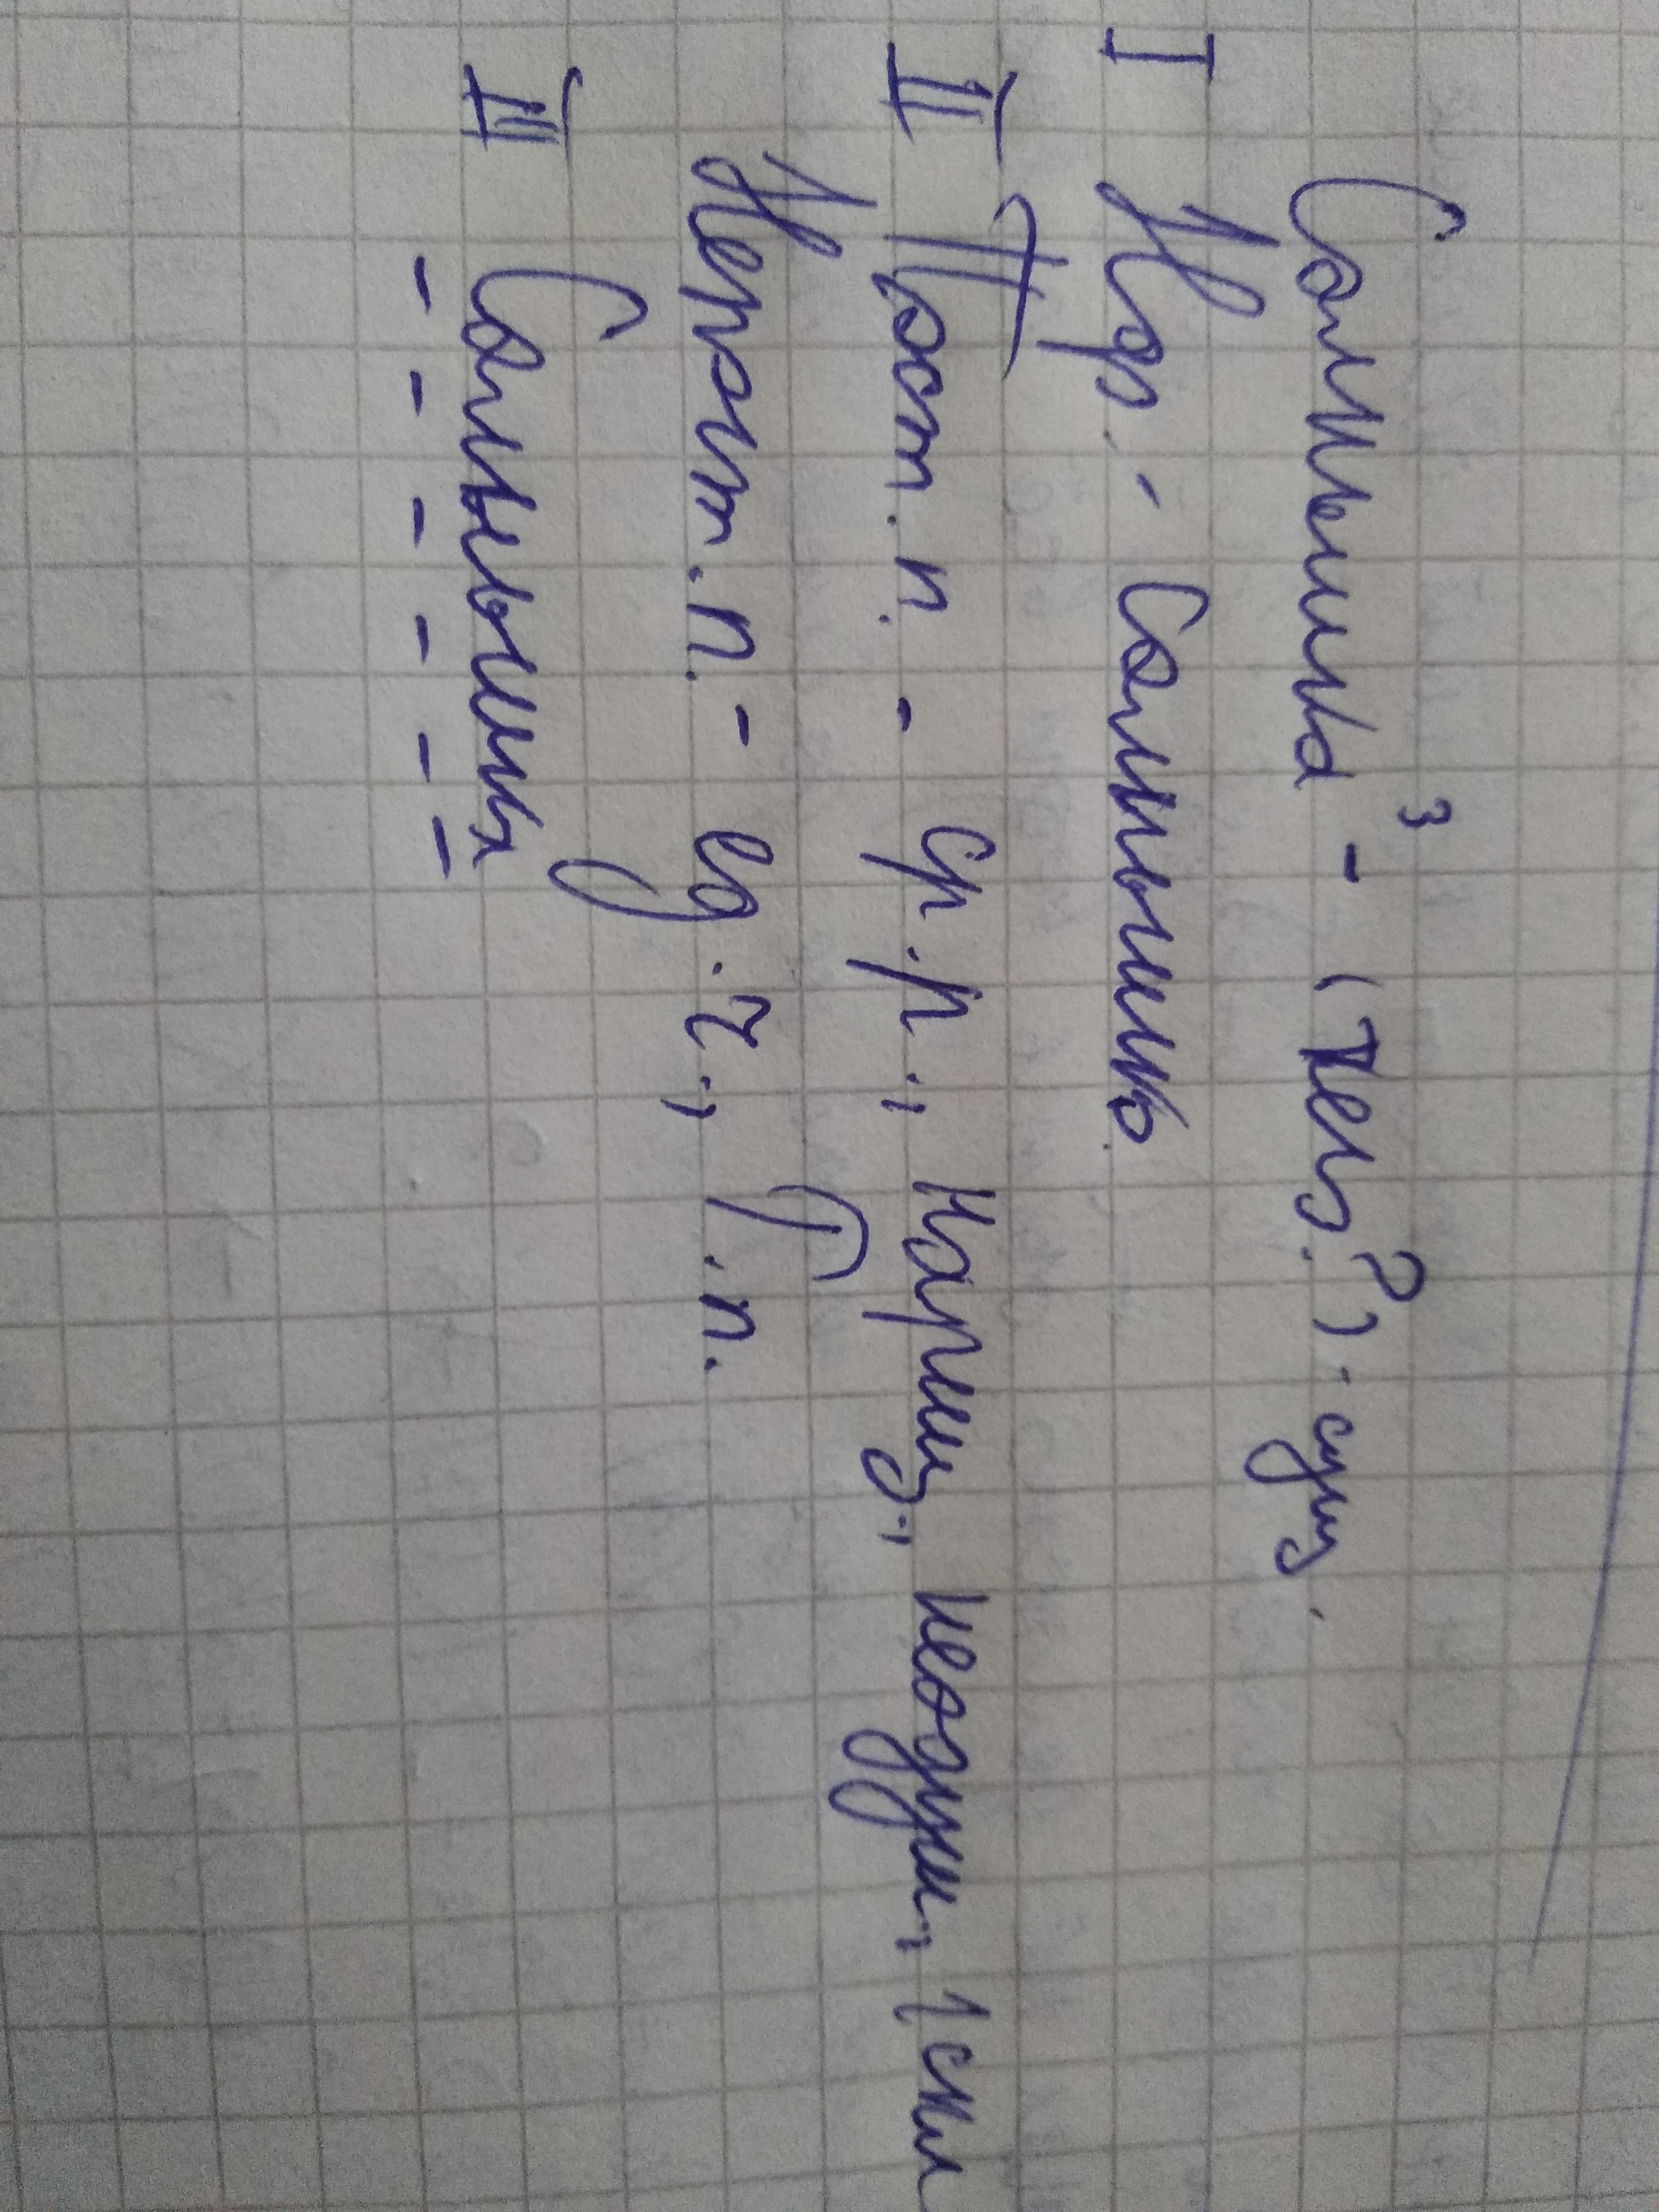 Солнышка³ - (чего?) - сущ.
I Н.ф. - Солнышко
II Пост. п. - ср. р., нариц., неодуш., 1 скл
Непост. п. - ед. ч., Р. п.
III Солнышка